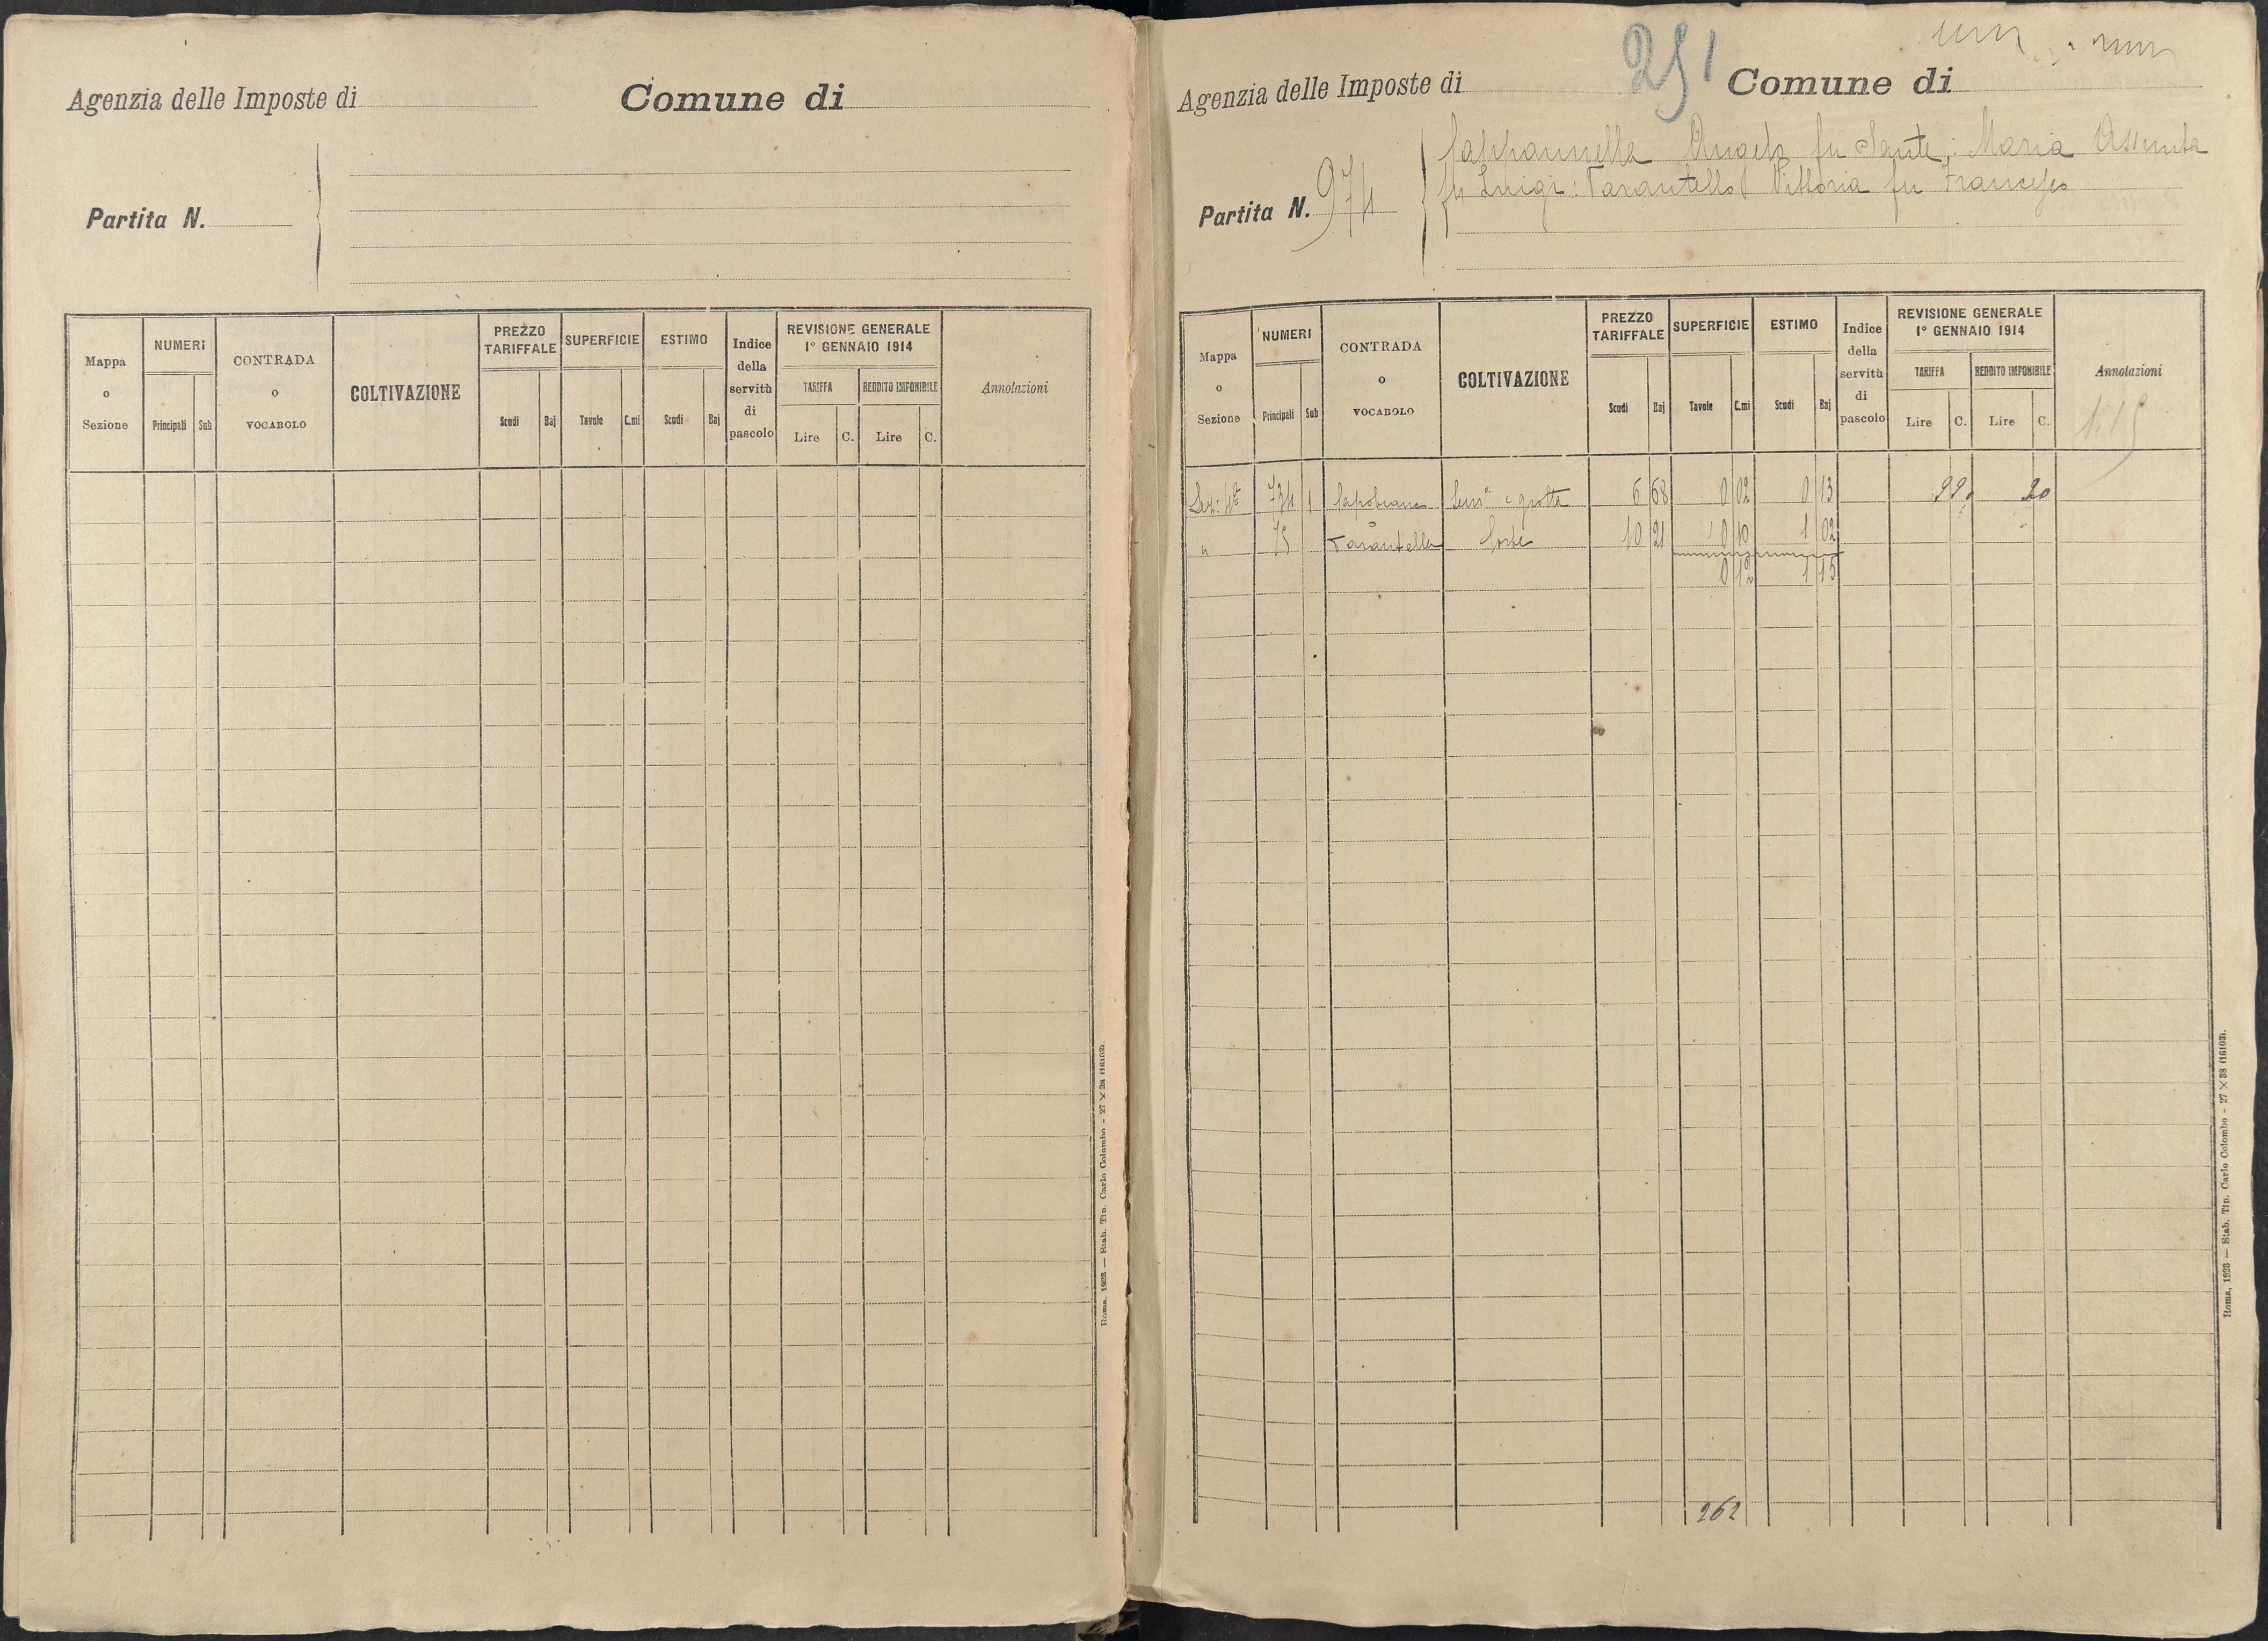 Agenzia delle Imposte di Comune di
Partita N.
Mappa o Sezione
NUMERI
Principali Sub
CONTRADA o VOCABOLO
COLTIVAZIONE
PREZZO TARIFFALE
Scudi Baj
SUPERFICIE
Tavole C.mi
ESTIMO
Scudi Baj
Indice della servitù di pascolo
REVISIONE GENERALE
1° GENNAIO 1914
TARIFFA
Lire C.
REDDITO IMPONIBILE
Lire C.
Annotazioni
Roma, 1923 — Stab. Tip. Carlo Colombo - 27 × 38 (16103).
251
Agenzia delle Imposte di Comune di
Partita N. 974
Cappannella Angelo fu Sante; Maria Assunta
fu Luigi: Tarantello Vittoria fu Francesco
Mappa o Sezione
NUMERI
Principali Sub
CONTRADA o VOCABOLO
COLTIVAZIONE
PREZZO TARIFFALE
Scudi Baj
SUPERFICIE
Tavole C.mi
ESTIMO
Scudi Baj
Indice della servitù di pascolo
REVISIONE GENERALE
1° GENNAIO 1914
TARIFFA
Lire C.
REDDITO IMPONIBILE
Lire C.
Annotazioni
1.15
Sez: 4ª 734 1 Sem° e grotta 6 68 0 02 0 13 99 20
" 75 Tarantella 10 21 0 10 1 02
0 12 1 15
262
Roma, 1923 — Stab. Tip. Carlo Colombo - 27 × 38 (16103).